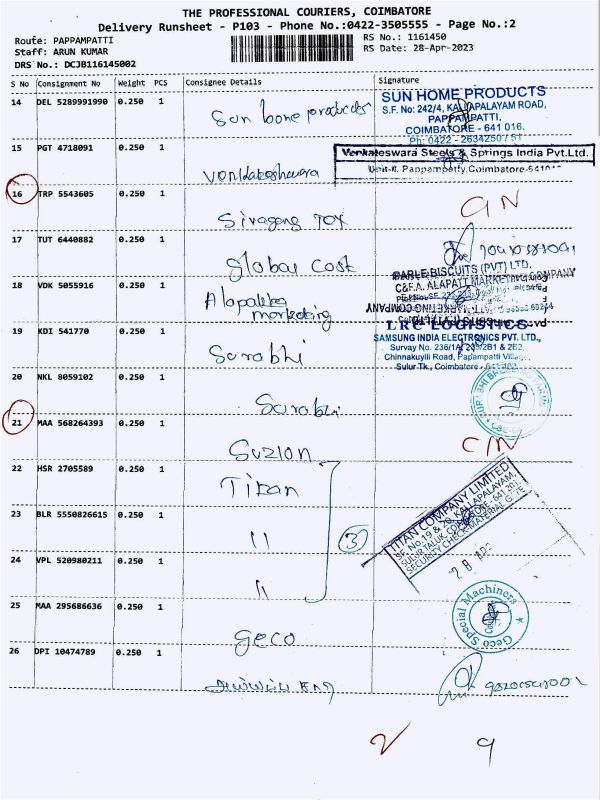 THE PROFESSIONAL COURIERS, COIMBATORE
Delivery Runsheet - P103 - Phone No.:0422-3505555 - Page No.:2
Route: PAPPAMPATTI
Staff: ARUN KUMAR
DRS No.: DCJB116145002
RS No.: 1161450
RS Date: 28-Apr-2023
S No Consignment No Weight PCS Consignee Details Signature
14 DEL 5289991990 0.250 1
Sun home products
SUN HOME PRODUCTS
S.F. No: 242/4, KALLAPALAYAM ROAD,
PAPPAMPATTI,
COIMBATORE - 641 016.
Ph: 0422 - 2634250 / 51
15 PGT 4718091 0.250 1
Venkateshwara
Venkateswara Steels & Springs India Pvt.Ltd.
Unit-II, Pappampatty, Coimbatore-
16 TRP 5543605 0.250 1
17 TUT 6440882 0.250 1
Global Cost
18 VDK 5055916 0.250 1
marketing
PARLE BISCUITS (PVT) LTD.
C&F.A. ALAPATT MARKETING COMPANY
19 KDI 541770 0.250 1
Surabhi
LRC LOGISTICS
SAMSUNG INDIA ELECTRONICS PVT. LTD.,
Survay No. 236/1A, 2B2
Chinnakuyili Road, Papampatti
Sulur Tk., Coimbatore -
20 NKL 8059102 0.250 1
Surabhi
21 MAA 568264393 0.250 1
Suzlon
CIN
22 HSR 2705589 0.250 1
Titan
23 BLR 5550826615 0.250 1
"
3
24 VPL 520980211 0.250 1
"
TITAN COMPANY LIMITED
SF. No. 19 & 20, KALLAPALAYAM,
SULUR TALUK, COIMBATORE - 641 201
SECURITY CHECK/MATERIAL GATE
28 APR
25 MAA 295686636 0.250 1
Geco
Geco Special Machiners
26 DPI 10474789 0.250 1
2 9